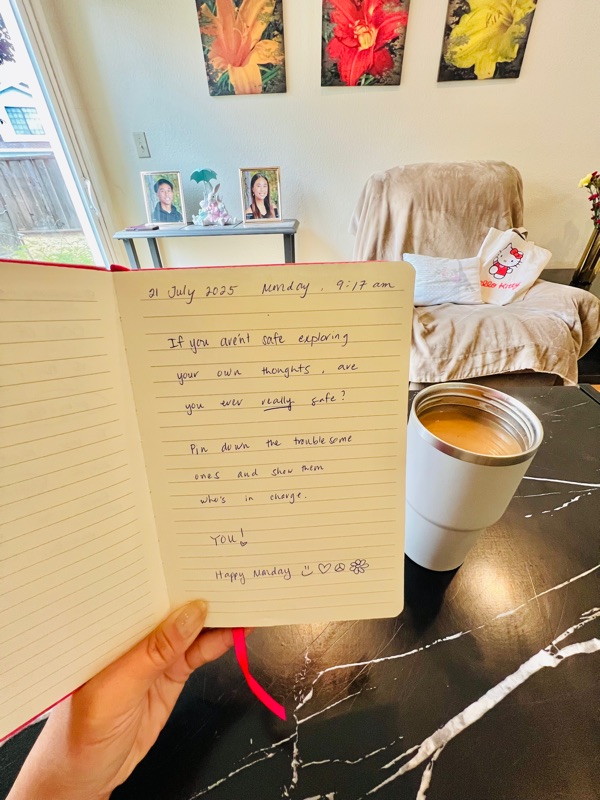 21 July 2025 Monday, 9:17 am
If you aren't safe exploring
your own thoughts, are
you ever really safe?
Pin down the troublesome
ones and show them
who's in charge.
YOU!
Happy Monday
HELLO KITTY